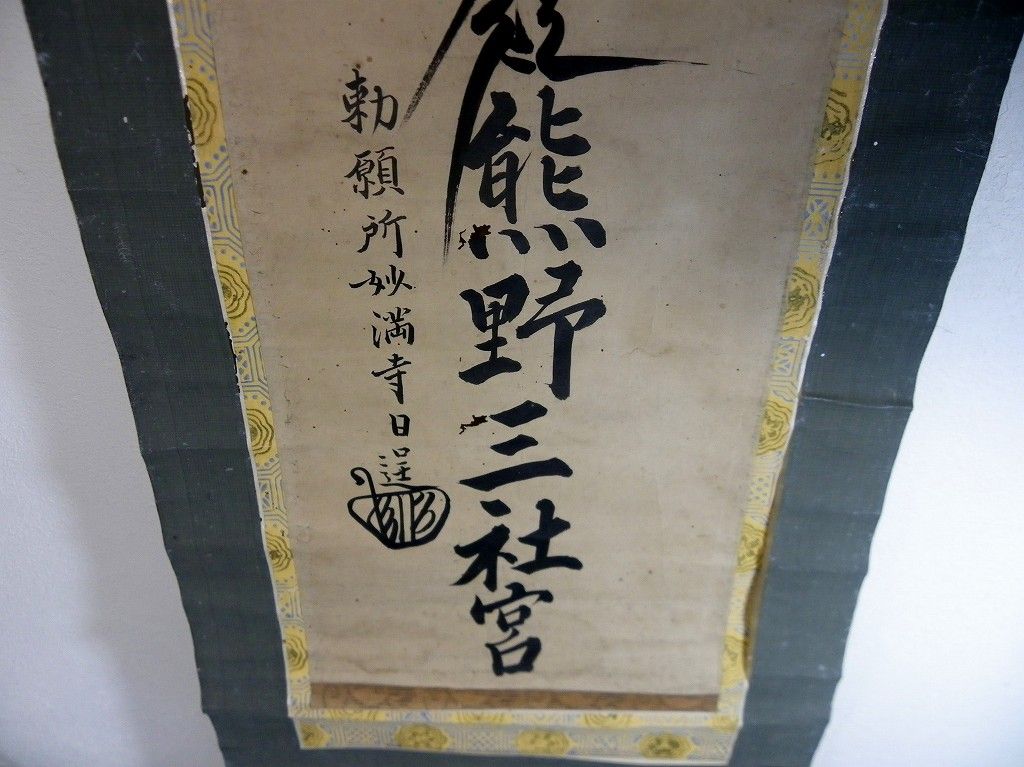 熊野三社宮
勅願所妙満寺日逞